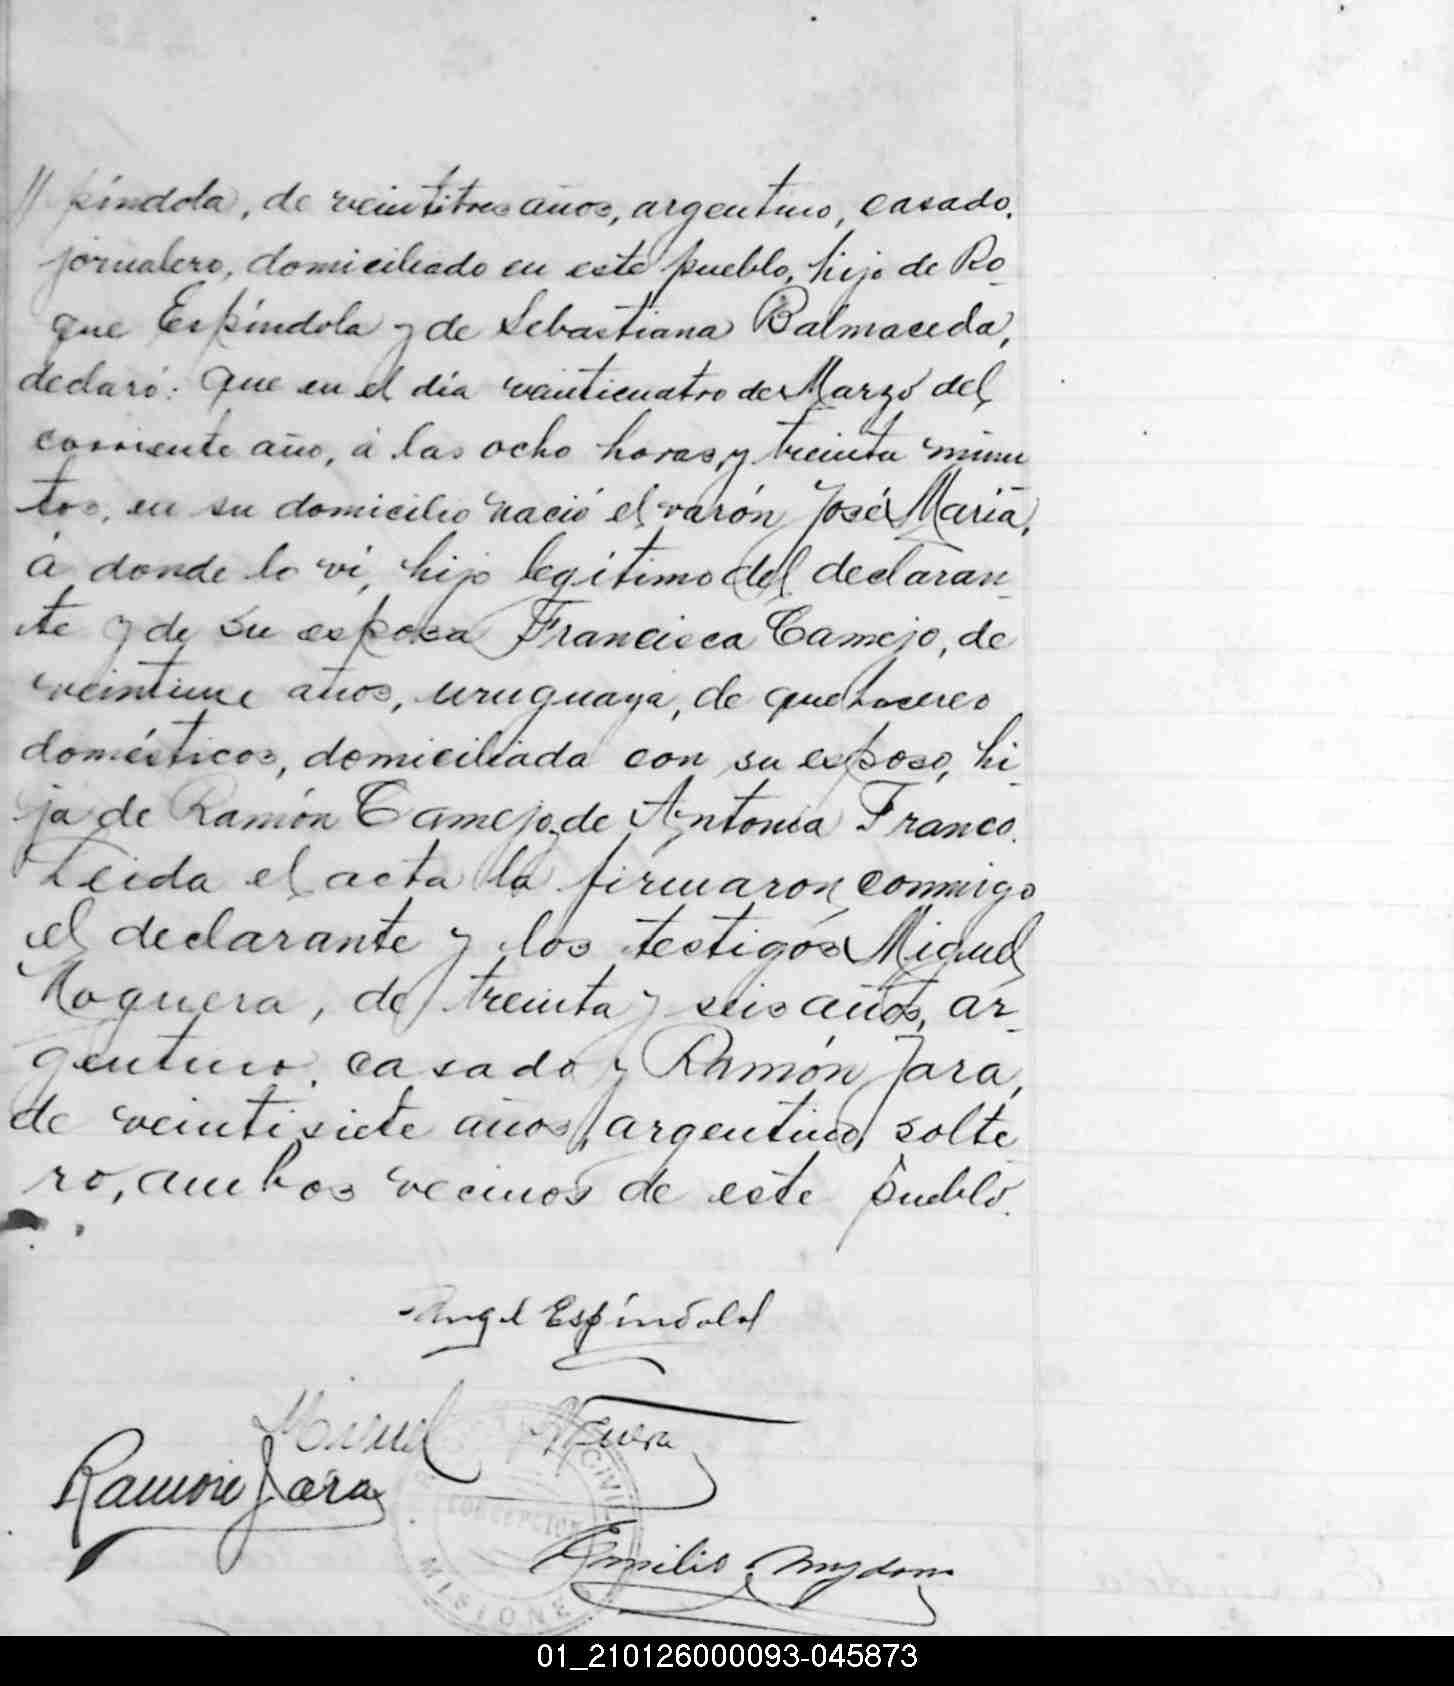 // píndola, de veintitres años, argentino, casado,
jornalero, domiciliado en este pueblo, hijo de Ro-
que Espíndola y de Sebastiana Balmaceda,
declaró: Que en el día veinticuatro de Marzo del
corriente año, á las ocho horas y treinta minu
tos, en su domicilio nació el varón José María,
á donde lo vi, hijo legítimo del declaran-
te y de su esposa Francisca Camejo, de
años, uruguaya, de quehaceres
domésticos, domiciliada con su esposo, hi-
ja de Ramón Camejo y de Antonia Franco.
Leida el acta la firmaron conmigo
el declarante y los testigos Miguel
Noguera, de treinta y seis años, ar-
gentino, casado y Ramón Jara,
de veintisiete años, argentino, solte
ro, ambos vecinos de este pueblo.
Angel Espíndola
Miguel Noguera
Ramón Jara
CIVIL
CONCEPCION
MISIONES
Emilio
01_210126000093-045873